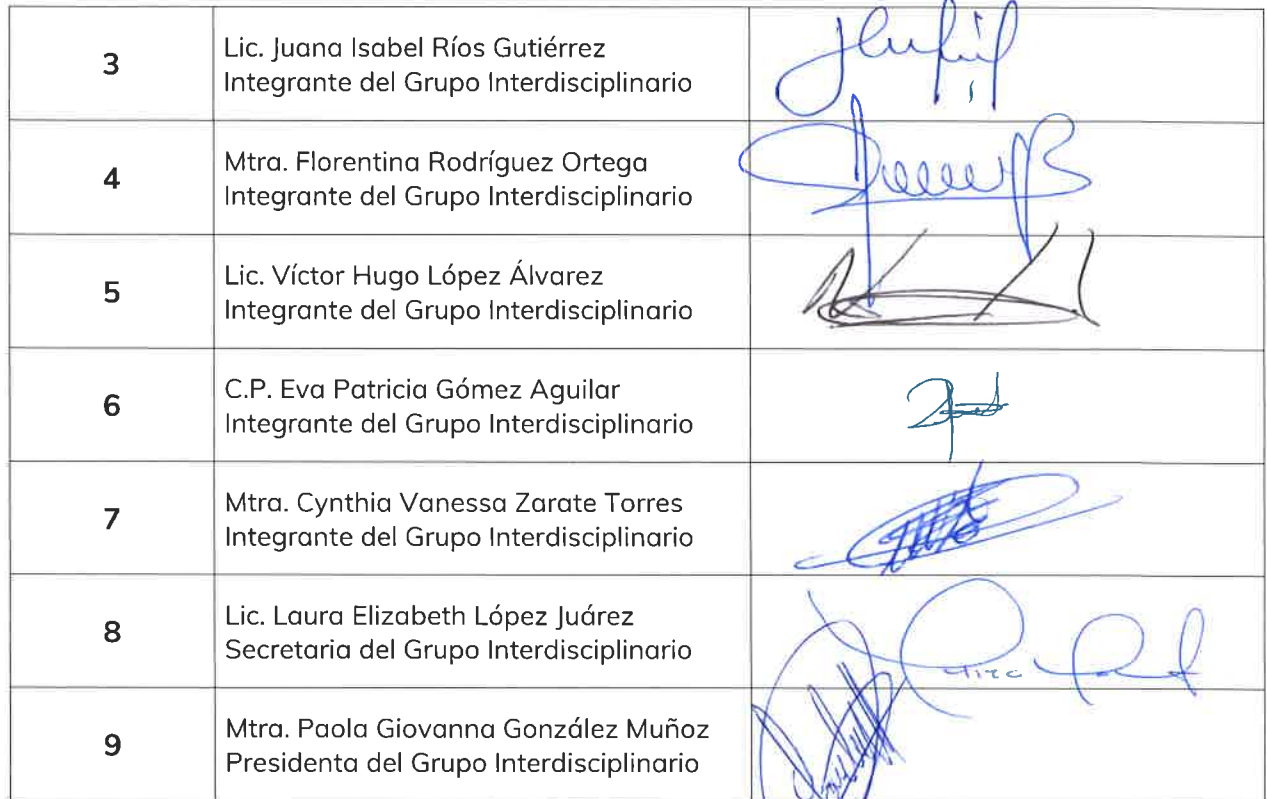 3
Lic. Juana Isabel Ríos Gutiérrez
Integrante del Grupo Interdisciplinario
4
Mtra. Florentina Rodríguez Ortega
Integrante del Grupo Interdisciplinario
5
Lic. Víctor Hugo López Álvarez
Integrante del Grupo Interdisciplinario
6
C.P. Eva Patricia Gómez Aguilar
Integrante del Grupo Interdisciplinario
7
Mtra. Cynthia Vanessa Zarate Torres
Integrante del Grupo Interdisciplinario
8
Lic. Laura Elizabeth López Juárez
Secretaria del Grupo Interdisciplinario
9
Mtra. Paola Giovanna González Muñoz
Presidenta del Grupo Interdisciplinario